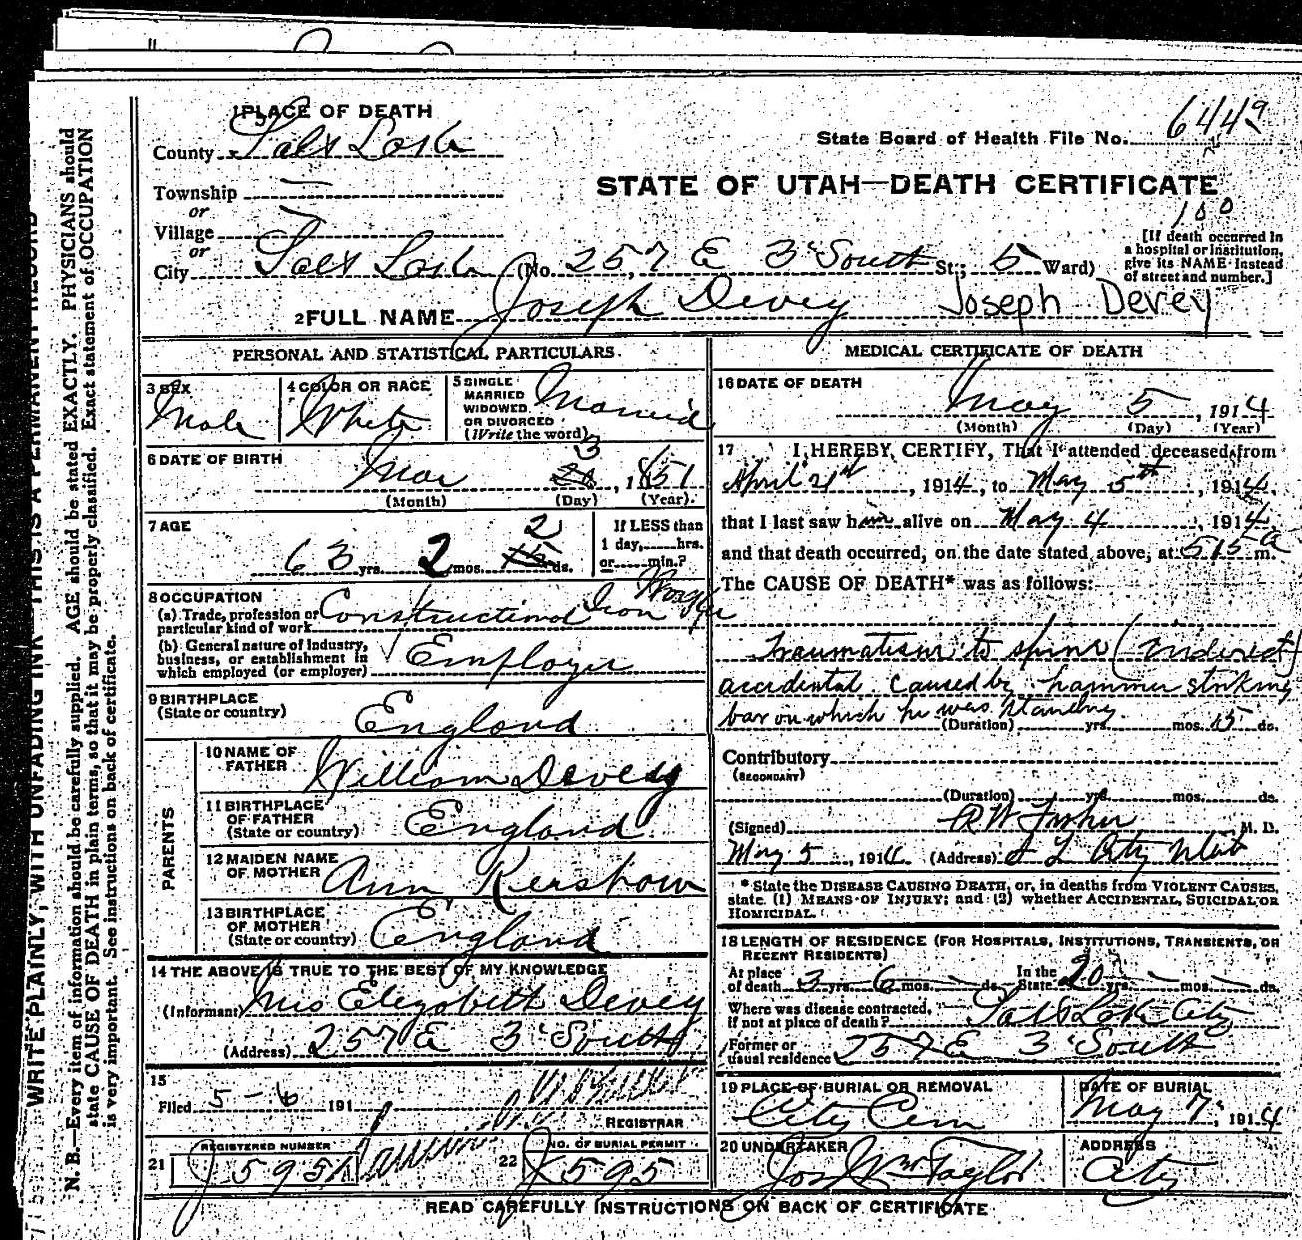 1 PLACE OF DEATH
County Salt Lake
State Board of Health File No. 6449
STATE OF UTAH—DEATH CERTIFICATE
Township —
or
Village
or
100
[If death occurred in
a hospital or institution,
give its NAME instead
of street and number.]
City Salt Lake (No. 257 E 3' South St.; 5 Ward)
2 FULL NAME Joseph Devey Joseph Devey
PERSONAL AND STATISTICAL PARTICULARS.
3 SEX
Male
4 COLOR OR RACE
White
5 SINGLE
MARRIED
WIDOWED
OR DIVORCED
(Write the word)
Married
6 DATE OF BIRTH
Mar 3 1851
(Month) (Day) (Year).
7 AGE
63 yrs. 2 mos. 2 ds.
If LESS than
1 day, hrs.
or min.?
8 OCCUPATION
(a) Trade, profession or
particular kind of work Constructional Iron
(b) General nature of Industry,
business, or establishment in
which employed (or employer) Employer
9 BIRTHPLACE
(State or country) England
PARENTS
10 NAME OF
FATHER William Devey
11 BIRTHPLACE
OF FATHER
(State or country) England
12 MAIDEN NAME
OF MOTHER Ann Kershaw
13 BIRTHPLACE
OF MOTHER
(State or country) England
14 THE ABOVE IS TRUE TO THE BEST OF MY KNOWLEDGE
(Informant) Mrs Elizabeth Devey
(Address) 257 E 3' South
15
Filed 5-6 191
REGISTRAR
REGISTERED NUMBER
21 J 595
NO. OF BURIAL PERMIT
22 J 595
MEDICAL CERTIFICATE OF DEATH
16 DATE OF DEATH
May 5, 1914
(Month) (Day) (Year)
17 I HEREBY CERTIFY, That I attended deceased from
April 21st, 1914, to May 5th, 1914,
that I last saw him alive on May 4, 1914,
and that death occurred, on the date stated above, at 515 a m.
The CAUSE OF DEATH* was as follows:
Traumatism to spine (indirect)
accidental caused by hammer striking
bar on which he was standing
(Duration) yrs. mos. 15 ds.
Contributory
(SECONDARY)
(Duration) yrs. mos. ds.
(Signed) R W Fisher M. D.
May 5, 1914 (Address) S L City Utah
* State the DISEASE CAUSING DEATH, or, in deaths from VIOLENT CAUSES,
state (1) MEANS OF INJURY; and (2) whether ACCIDENTAL, SUICIDAL, OR
HOMICIDAL.
18 LENGTH OF RESIDENCE (FOR HOSPITALS, INSTITUTIONS, TRANSIENTS, OR
RECENT RESIDENTS)
At place
of death 3 yrs. 6 mos. — ds.
In the
State 20 yrs. — mos. — ds.
Where was disease contracted,
if not at place of death? Salt Lake City
Former or
usual residence 257 E 3' South
19 PLACE OF BURIAL OR REMOVAL
City Cem
DATE OF BURIAL
May 7, 1914
20 UNDERTAKER
Jos Wm Taylor
ADDRESS
City
READ CAREFULLY INSTRUCTIONS ON BACK OF CERTIFICATE
WRITE PLAINLY, WITH UNFADING INK—THIS IS A PERMANENT RECORD
N. B.—Every item of information should be carefully supplied. AGE should be stated EXACTLY. PHYSICIANS should
state CAUSE OF DEATH in plain terms, so that it may be properly classified. Exact statement of OCCUPATION
is very important. See instructions on back of certificate.